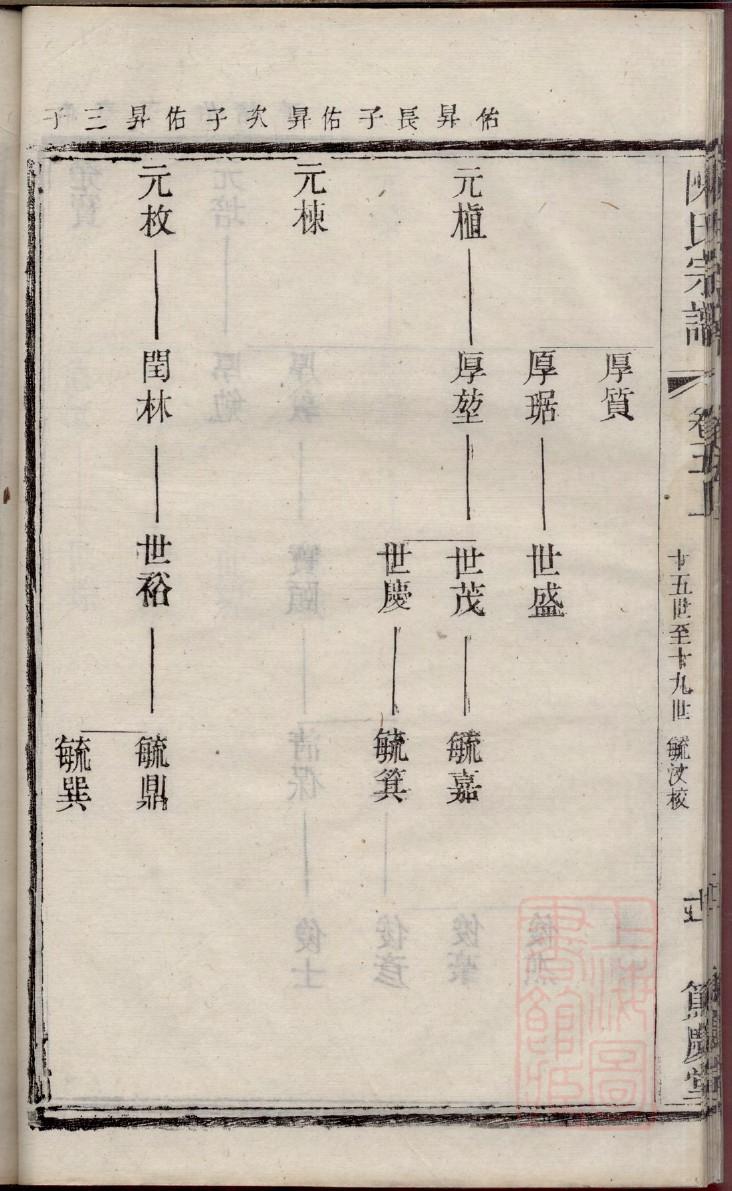 陳氏宗譜 卷五上 十五世至十九世 毓汶校 篤慶堂
佑昇長子
佑昇次子
佑昇三子
厚質
厚琚
世盛
元植
厚堃
世茂
毓嘉
世慶
毓箕
元棟
元枚
閏林
世裕
毓鼎
毓巽
上海圖書館藏